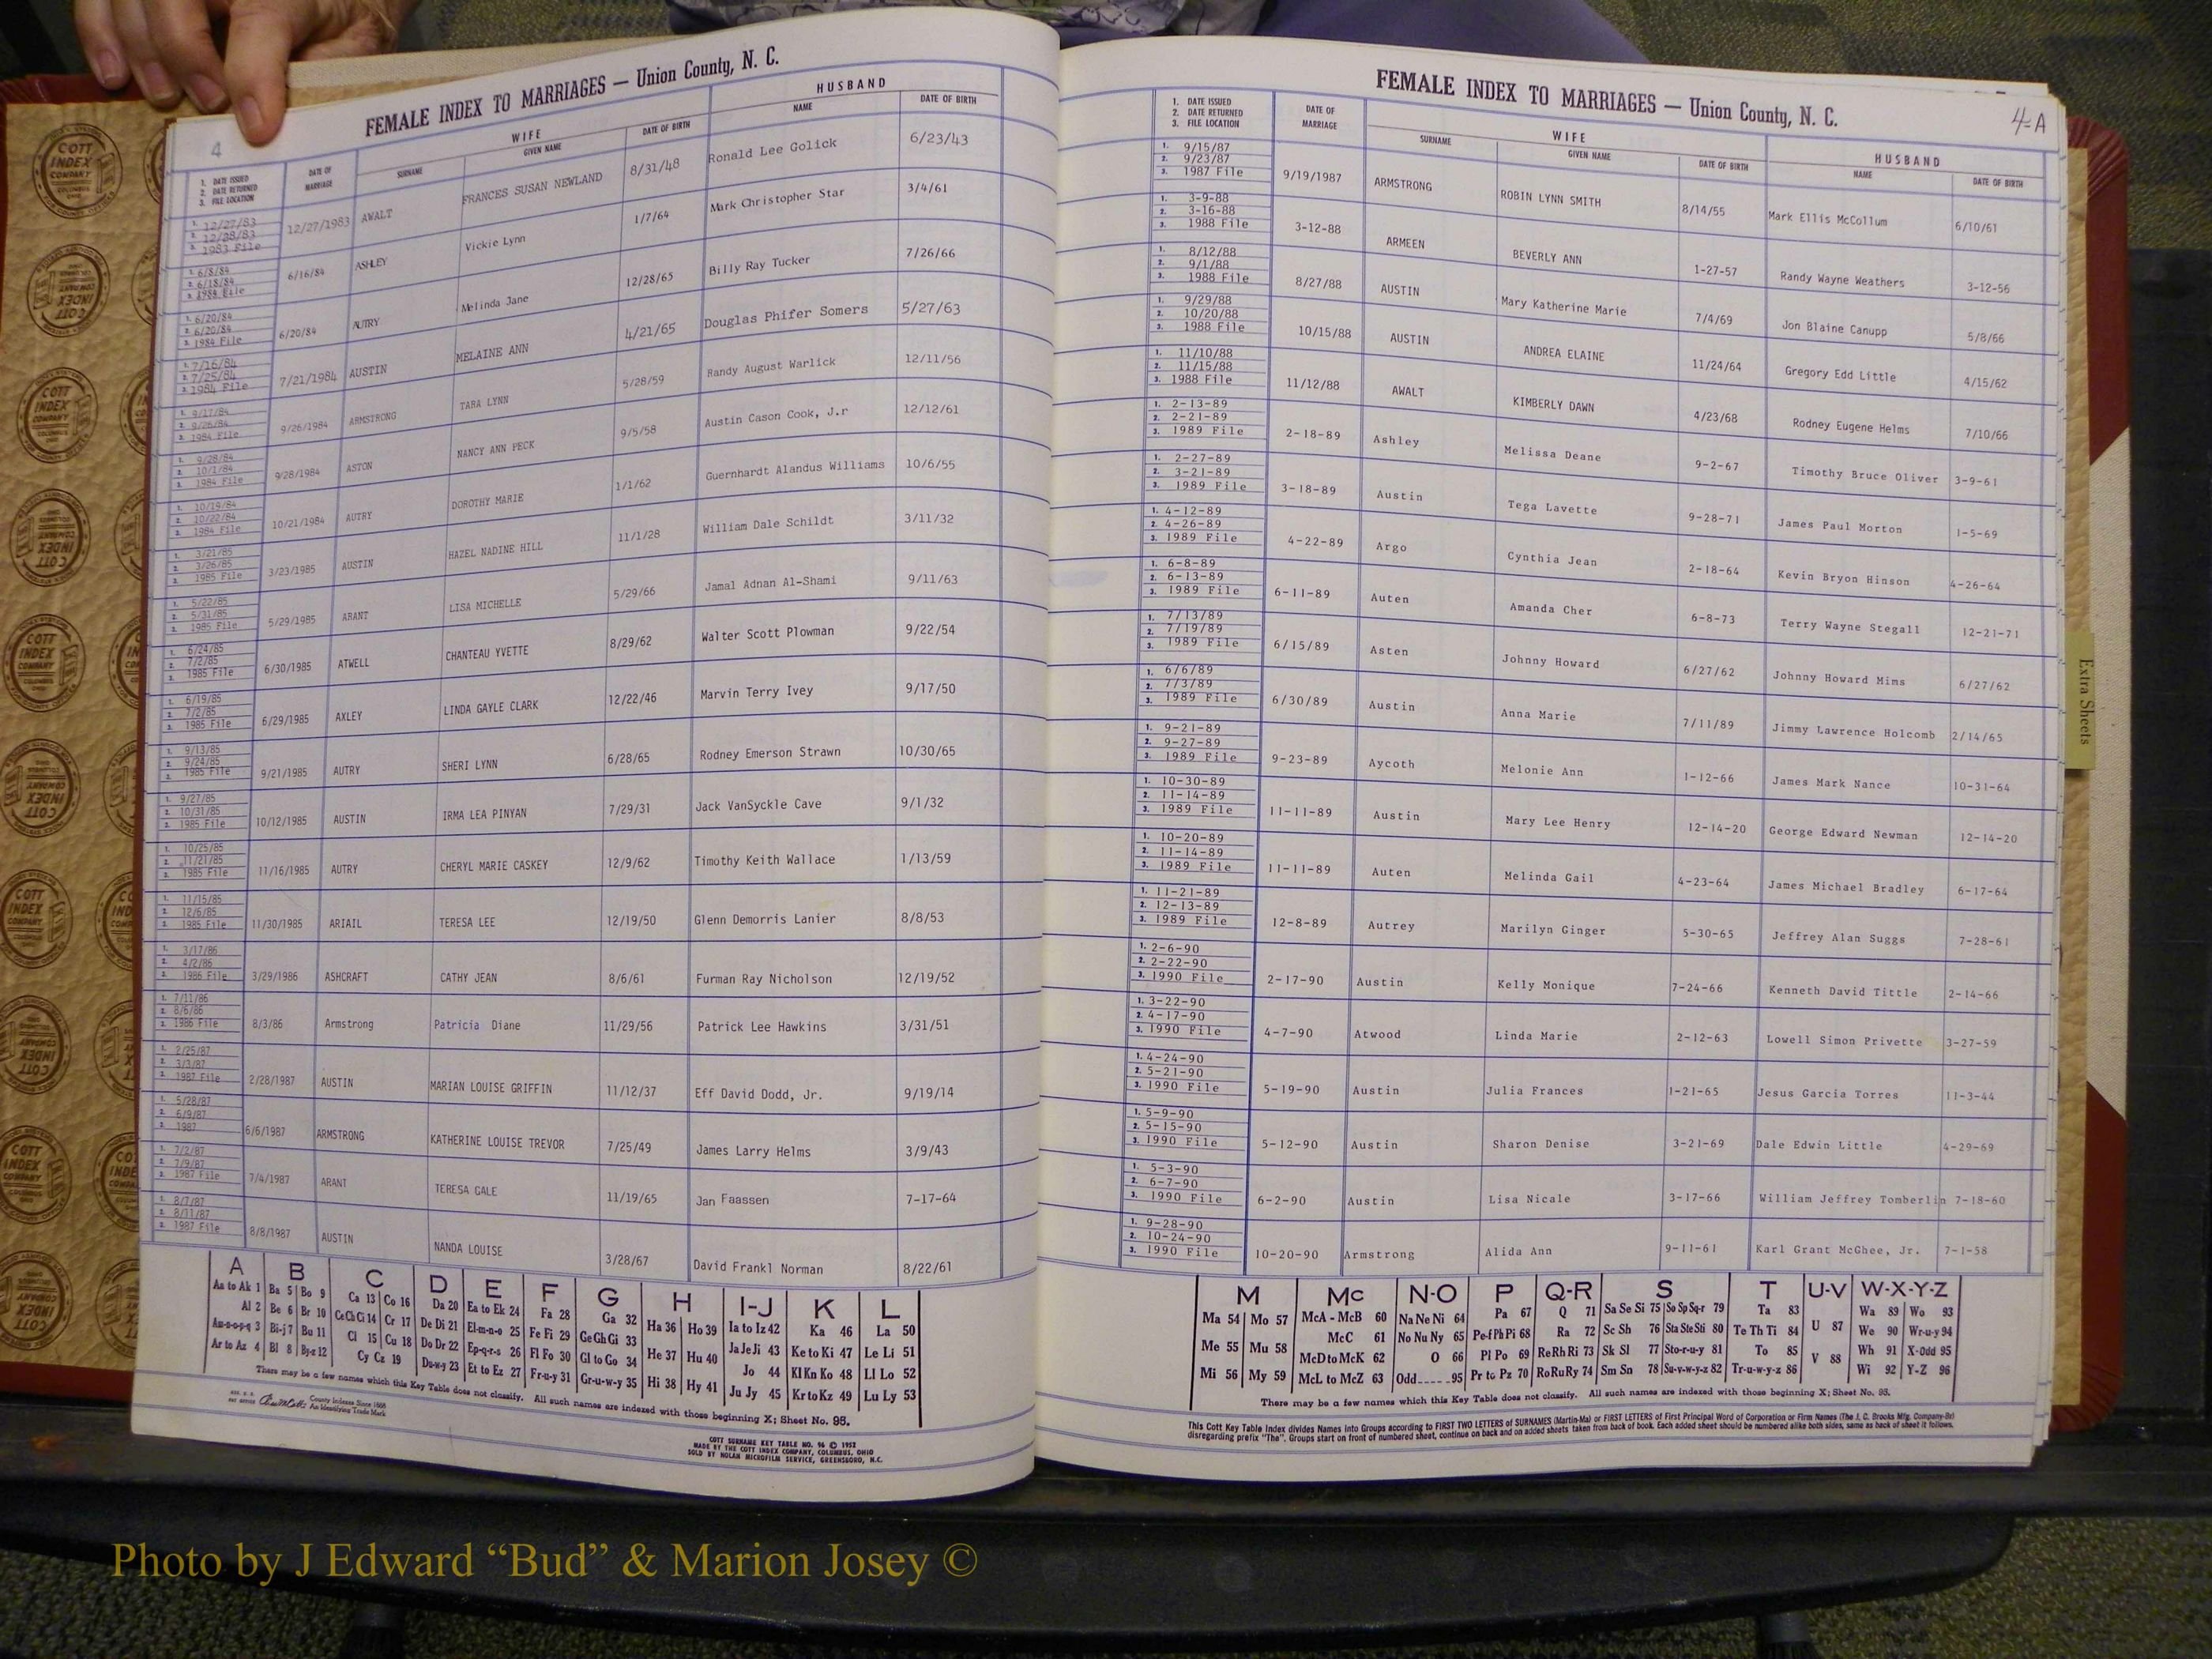 4
FEMALE INDEX TO MARRIAGES — Union County, N. C.
1. DATE ISSUED
2. DATE RETURNED
3. FILE LOCATION
DATE OF MARRIAGE
WIFE
SURNAME GIVEN NAME DATE OF BIRTH
HUSBAND
NAME DATE OF BIRTH
1. 12/27/83
2. 12/28/83
3. 1983 File
12/27/1983 AWALT FRANCES SUSAN NEWLAND 8/31/48 Ronald Lee Golick 6/23/43
1. 6/8/84
2. 6/18/84
3. 1984 File
6/16/84 ASHLEY Vickie Lynn 1/7/64 Mark Christopher Star 3/4/61
1. 6/20/84
2. 6/20/84
3. 1984 File
6/20/84 AUTRY Melinda Jane 12/28/65 Billy Ray Tucker 7/26/66
1. 7/16/84
2. 7/25/84
3. 1984 File
7/21/1984 AUSTIN MELAINE ANN 4/21/65 Douglas Phifer Somers 5/27/63
1. 9/17/84
2. 9/26/84
3. 1984 File
9/26/1984 ARMSTRONG TARA LYNN 5/28/59 Randy August Warlick 12/11/56
1. 9/28/84
2. 10/1/84
3. 1984 File
9/28/1984 ASTON NANCY ANN PECK 9/5/58 Austin Cason Cook, J.r 12/12/61
1. 10/19/84
2. 10/22/84
3. 1984 File
10/21/1984 AUTRY DOROTHY MARIE 1/1/62 Guernhardt Alandus Williams 10/6/55
1. 3/21/85
2. 3/26/85
3. 1985 File
3/23/1985 AUSTIN HAZEL NADINE HILL 11/1/28 William Dale Schildt 3/11/32
1. 5/22/85
2. 5/31/85
3. 1985 File
5/29/1985 ARANT LISA MICHELLE 5/29/66 Jamal Adnan Al-Shami 9/11/63
1. 6/24/85
2. 7/2/85
3. 1985 File
6/30/1985 ATWELL CHANTEAU YVETTE 8/29/62 Walter Scott Plowman 9/22/54
1. 6/19/85
2. 7/2/85
3. 1985 File
6/29/1985 AXLEY LINDA GAYLE CLARK 12/22/46 Marvin Terry Ivey 9/17/50
1. 9/13/85
2. 9/24/85
3. 1985 File
9/21/1985 AUTRY SHERI LYNN 6/28/65 Rodney Emerson Strawn 10/30/65
1. 9/27/85
2. 10/31/85
3. 1985 File
10/12/1985 AUSTIN IRMA LEA PINYAN 7/29/31 Jack VanSyckle Cave 9/1/32
1. 10/25/85
2. 11/21/85
3. 1985 File
11/16/1985 AUTRY CHERYL MARIE CASKEY 12/9/62 Timothy Keith Wallace 1/13/59
1. 11/15/85
2. 12/6/85
3. 1985 File
11/30/1985 ARIAIL TERESA LEE 12/19/50 Glenn Demorris Lanier 8/8/53
1. 3/17/86
2. 4/2/86
3. 1986 File
3/29/1986 ASHCRAFT CATHY JEAN 8/6/61 Furman Ray Nicholson 12/19/52
1. 7/11/86
2. 8/6/86
3. 1986 File
8/3/86 Armstrong Patricia Diane 11/29/56 Patrick Lee Hawkins 3/31/51
1. 2/25/87
2. 3/3/87
3. 1987 File
2/28/1987 AUSTIN MARIAN LOUISE GRIFFIN 11/12/37 Eff David Dodd, Jr. 9/19/14
1. 5/28/87
2. 6/9/87
3. 1987
6/6/1987 ARMSTRONG KATHERINE LOUISE TREVOR 7/25/49 James Larry Helms 3/9/43
1. 7/2/87
2. 7/9/87
3. 1987 File
7/4/1987 ARANT TERESA GALE 11/19/65 Jan Faassen 7-17-64
1. 8/7/87
2. 8/11/87
3. 1987 File
8/8/1987 AUSTIN NANDA LOUISE 3/28/67 David Frankl Norman 8/22/61
A B C D E F G H I-J K L
Aa to Ak 1 Ba 5 Bo 9 Ca 13 Co 16 Da 20 Ea to Ek 24 Fa 28 Ga 32 Ha 36 Ho 39 Ia to Iz 42 Ka 46 La 50
Al 2 Be 6 Br 10 Ce Ch Ci 14 Cr 17 De Di 21 El-m-n-o 25 Fe Fi 29 Ge Gh Gi 33 He 37 Hu 40 Ja Je Ji 43 Ke to Ki 47 Le Li 51
Am-n-o-p-q 3 Bi-j 7 Bu 11 Cl 15 Cu 18 Do Dr 22 Ep-q-r-s 26 Fl Fo 30 Gl to Go 34 Hi 38 Hy 41 Jo 44 Kl Kn Ko 48 Ll Lo 52
Ar to Az 4 Bl 8 By-z 12 Cy Cz 19 Du-w-y 23 Et to Ez 27 Fr-u-y 31 Gr-u-w-y 35 Ju Jy 45 Kr to Kz 49 Lu Ly 53
There may be a few names which this Key Table does not classify. All such names are indexed with those beginning X; Sheet No. 95.
County Indexes Since 1888
An Identifying Trade Mark
COTT SURNAME KEY TABLE NO. 96 © 1952
MADE BY THE COTT INDEX COMPANY, COLUMBUS, OHIO
SOLD BY NOLAN MICROFILM SERVICE, GREENSBORO, N.C.
4-A
FEMALE INDEX TO MARRIAGES — Union County, N. C.
1. DATE ISSUED
2. DATE RETURNED
3. FILE LOCATION
DATE OF MARRIAGE
WIFE
SURNAME GIVEN NAME DATE OF BIRTH
HUSBAND
NAME DATE OF BIRTH
1. 9/15/87
2. 9/23/87
3. 1987 File
9/19/1987 ARMSTRONG ROBIN LYNN SMITH 8/14/55 Mark Ellis McCollum 6/10/61
1. 3-9-88
2. 3-16-88
3. 1988 File
3-12-88 ARMEEN BEVERLY ANN 1-27-57 Randy Wayne Weathers 3-12-56
1. 8/12/88
2. 9/1/88
3. 1988 File
8/27/88 AUSTIN Mary Katherine Marie 7/4/69 Jon Blaine Canupp 5/8/66
1. 9/29/88
2. 10/20/88
3. 1988 File
10/15/88 AUSTIN ANDREA ELAINE 11/24/64 Gregory Edd Little 4/15/62
1. 11/10/88
2. 11/15/88
3. 1988 File
11/12/88 AWALT KIMBERLY DAWN 4/23/68 Rodney Eugene Helms 7/10/66
1. 2-13-89
2. 2-21-89
3. 1989 File
2-18-89 Ashley Melissa Deane 9-2-67 Timothy Bruce Oliver 3-9-61
1. 2-27-89
2. 3-21-89
3. 1989 File
3-18-89 Austin Tega Lavette 9-28-71 James Paul Morton 1-5-69
1. 4-12-89
2. 4-26-89
3. 1989 File
4-22-89 Argo Cynthia Jean 2-18-64 Kevin Bryon Hinson 4-26-64
1. 6-8-89
2. 6-13-89
3. 1989 File
6-11-89 Auten Amanda Cher 6-8-73 Terry Wayne Stegall 12-21-71
1. 7/13/89
2. 7/19/89
3. 1989 File
6/15/89 Asten Johnny Howard 6/27/62 Johnny Howard Mims 6/27/62
1. 6/6/89
2. 7/3/89
3. 1989 File
6/30/89 Austin Anna Marie 7/11/89 Jimmy Lawrence Holcomb 2/14/65
1. 9-21-89
2. 9-27-89
3. 1989 File
9-23-89 Aycoth Melonie Ann 1-12-66 James Mark Nance 10-31-64
1. 10-30-89
2. 11-14-89
3. 1989 File
11-11-89 Austin Mary Lee Henry 12-14-20 George Edward Newman 12-14-20
1. 10-20-89
2. 11-14-89
3. 1989 File
11-11-89 Auten Melinda Gail 4-23-64 James Michael Bradley 6-17-64
1. 11-21-89
2. 12-13-89
3. 1989 File
12-8-89 Autrey Marilyn Ginger 5-30-65 Jeffrey Alan Suggs 7-28-61
1. 2-6-90
2. 2-22-90
3. 1990 File
2-17-90 Austin Kelly Monique 7-24-66 Kenneth David Tittle 2-14-66
1. 3-22-90
2. 4-17-90
3. 1990 File
4-7-90 Atwood Linda Marie 2-12-63 Lowell Simon Privette 3-27-59
1. 4-24-90
2. 5-21-90
3. 1990 File
5-19-90 Austin Julia Frances 1-21-65 Jesus Garcia Torres 11-3-44
1. 5-9-90
2. 5-15-90
3. 1990 File
5-12-90 Austin Sharon Denise 3-21-69 Dale Edwin Little 4-29-69
1. 5-3-90
2. 6-7-90
3. 1990 File
6-2-90 Austin Lisa Nicale 3-17-66 William Jeffrey Tomberlin 7-18-60
1. 9-28-90
2. 10-24-90
3. 1990 File
10-20-90 Armstrong Alida Ann 9-11-61 Karl Grant McGhee, Jr. 7-1-58
M Mc N-O P Q-R S T U-V W-X-Y-Z
Ma 54 Mo 57 McA - McB 60 Na Ne Ni 64 Pa 67 Q 71 Sa Se Si 75 So Sp Sq-r 79 Ta 83 U 87 Wa 89 Wo 93
Me 55 Mu 58 McC 61 No Nu Ny 65 Pe-f Ph Pi 68 Ra 72 Sc Sh 76 Sta Ste Sti 80 Te Th Ti 84 V 88 We 90 Wr-u-y 94
Mi 56 My 59 McD to McK 62 O 66 Pl Po 69 Re Rh Ri 73 Sk Sl 77 Sto-r-u-y 81 To 85 Wh 91 X-Odd 95
McL to McZ 63 Odd 95 Pr to Pz 70 Ro Ru Ry 74 Sm Sn 78 Su-v-w-y-z 82 Tr-u-w-y-z 86 Wi 92 Y-Z 96
There may be a few names which this Key Table does not classify. All such names are indexed with those beginning X; Sheet No. 95.
This Cott Key Table Index divides Names into Groups according to FIRST TWO LETTERS of SURNAMES (Martin-Ma) or FIRST LETTERS of First Principal Word of Corporation or Firm Names (The J. C. Brooks Mfg. Company-Br)
disregarding prefix "The". Groups start on front of numbered sheet, continue on back and on added sheets taken from back of book. Each added sheet should be numbered alike both sides, same as back of sheet it follows.
Extra Sheets
COTT INDEX COMPANY
Photo by J Edward “Bud” & Marion Josey ©